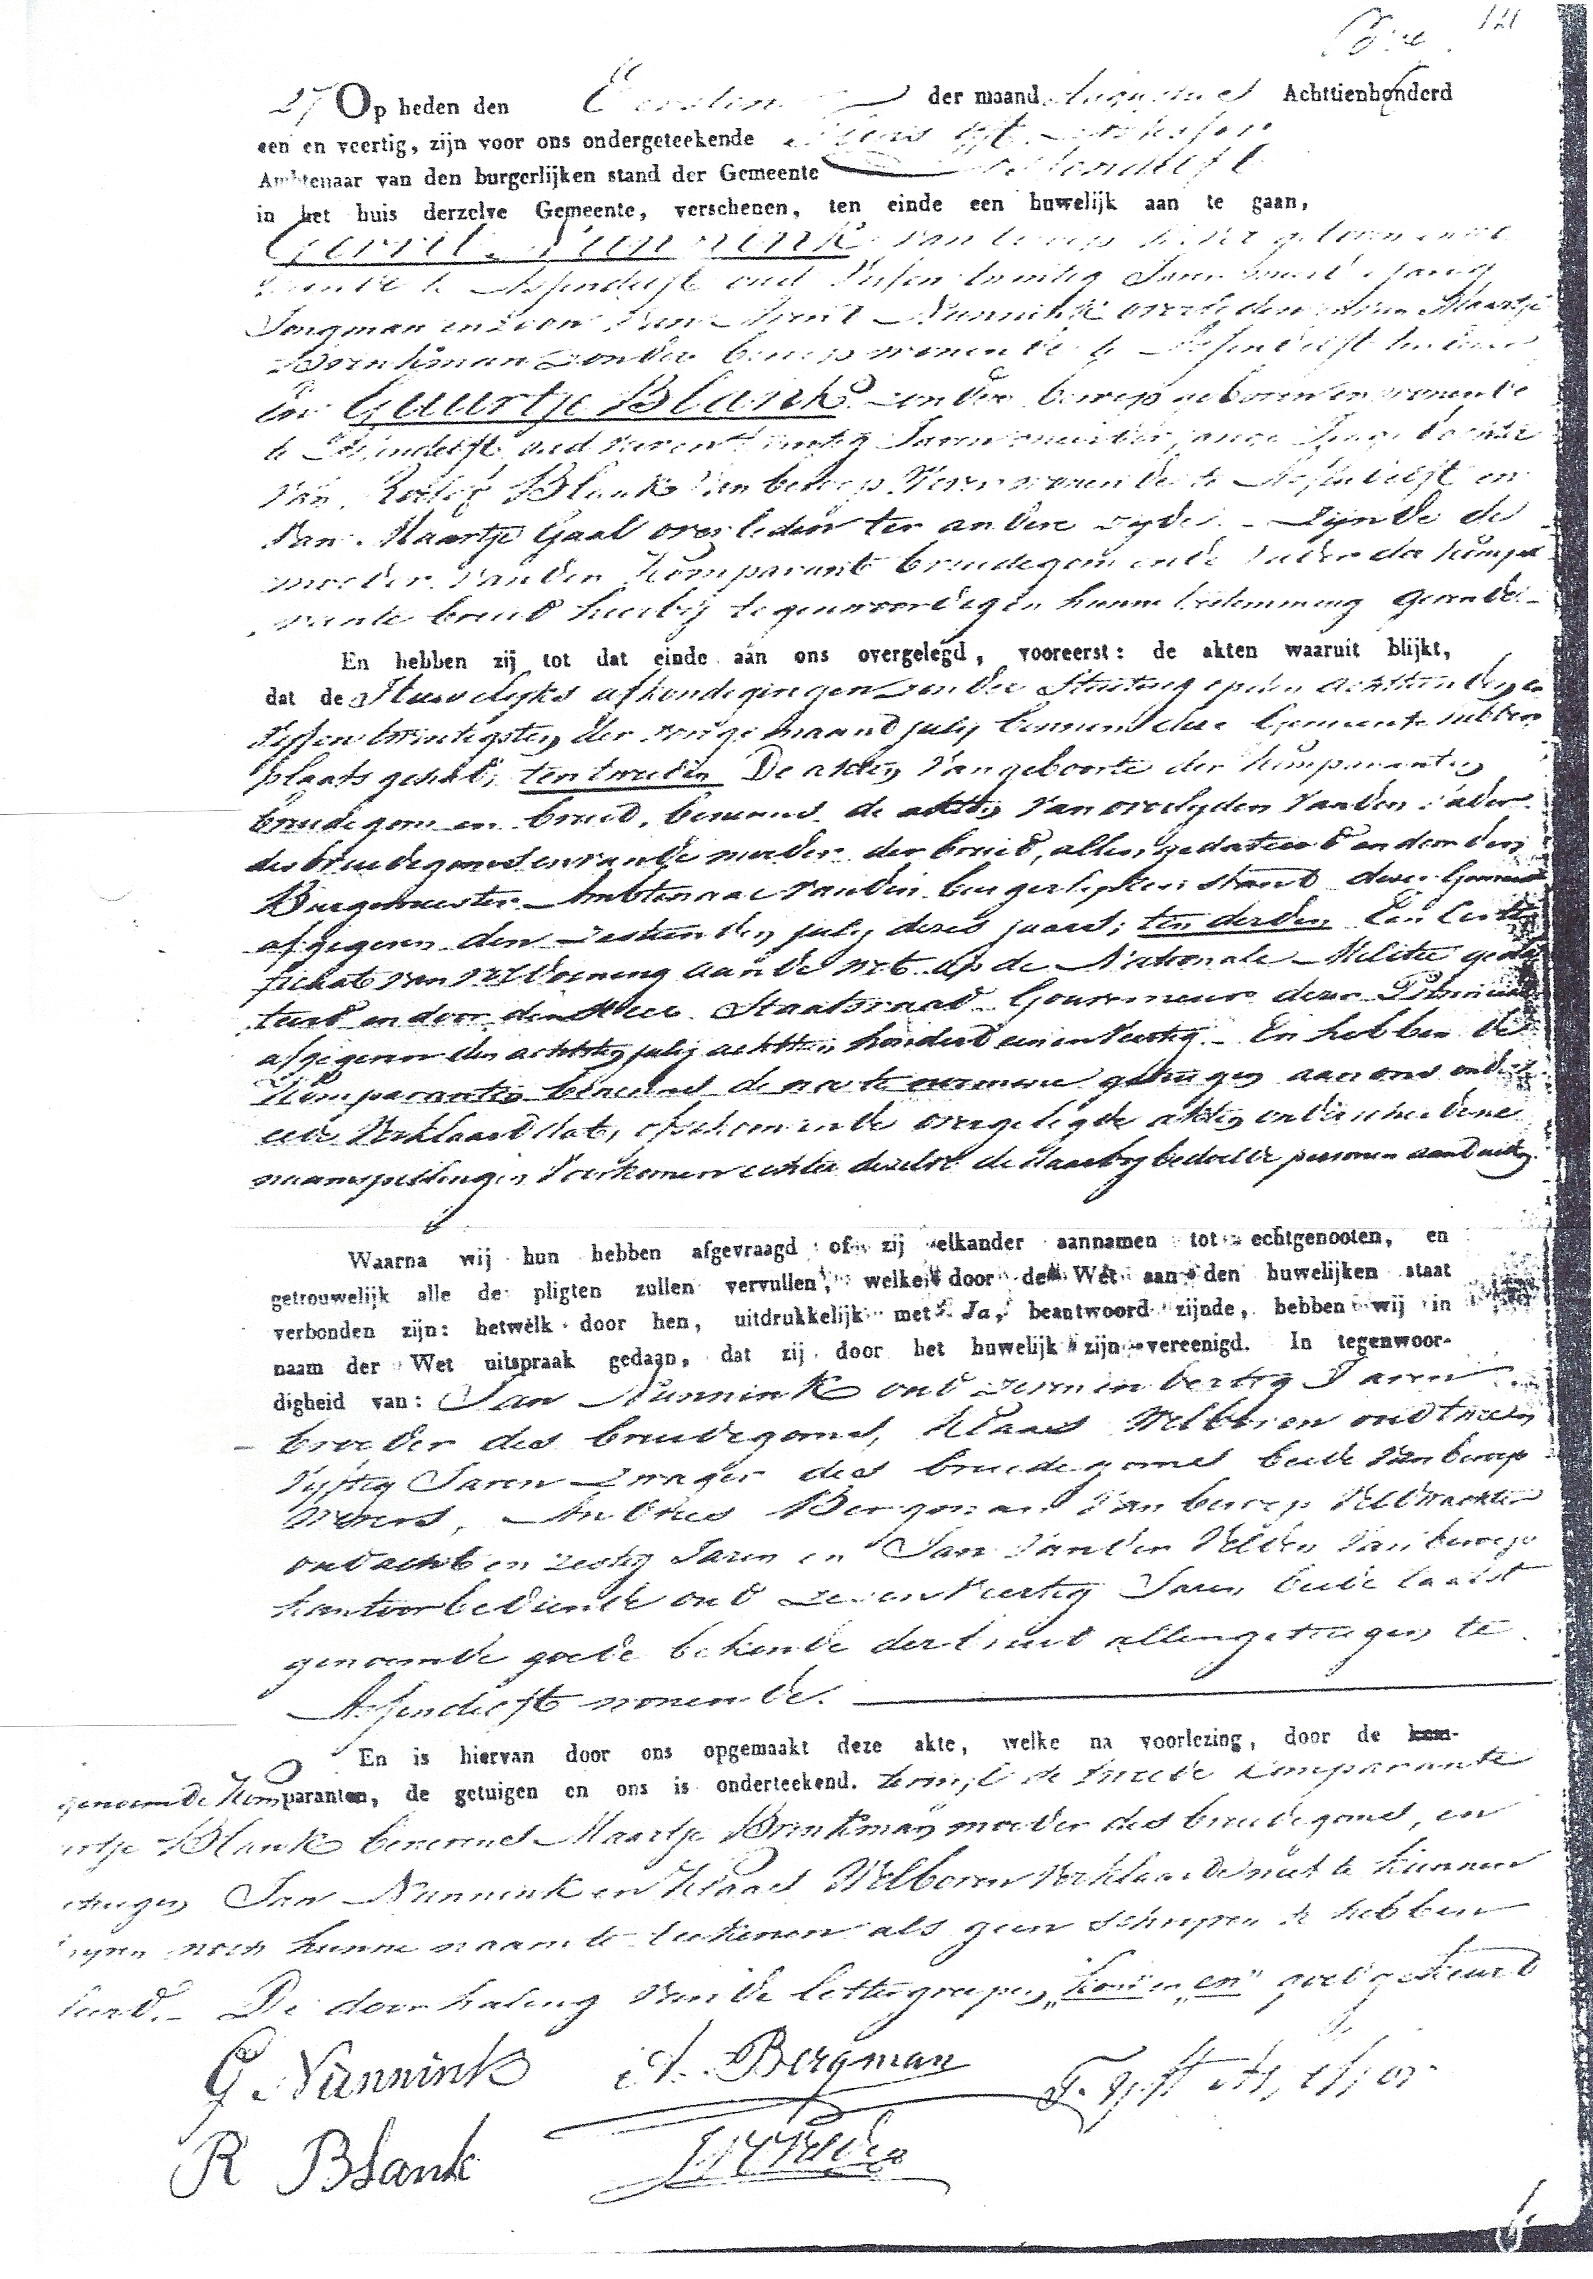 121
27 Op heden den Eersten der maand Augustus Achttienhonderd
een en veertig, zijn voor ons ondergeteekende
Ambtenaar van den burgerlijken stand der Gemeente Assendelft
in het huis derzelve Gemeente, verschenen, ten einde een huwelijk aan te gaan,
Gerrit Nunnink van beroep geboren en wo
nende te Assendelft oud Jaren
Jongman en zoon van Arent Nunnink overleden en van Maartje
Brinkman zonder beroep wonende te Assendelft ter eene
en Guurtje Blank zonder beroep geboren en wonende
te Assendelft oud Jaren Jonge dochter
van Roelof Blank van beroep Wever wonende te Assendelft en
van Maartje Gaal overleden ter andere zijde. - Zijnde de
moeder van den Komparant bruidegom en de vader der Kompa
rante bruid hierbij tegenwoordig en hunne toestemming gevende. -
En hebben zij tot dat einde aan ons overgelegd, vooreerst: de akten waaruit blijkt,
dat de Huwelijks afkondigingen zonder Stuiting op den achttienden en
vijfentwintigsten der vorige maand julij binnen deze Gemeente hebben
plaats gehad; ten tweeden De akten van geboorte der Komparanten
bruidegom en bruid, benevens de akten van overlijden van den vader
des bruidegoms en van de moeder der bruid, allen gedateerd en door den
Burgemeester Ambtenaar van den burgerlijken stand dezer Gemeente
afgegeven den zestienden julij dezes jaars; ten derden Een Certi
ficaat van voldoening aan de wet op de Nationale Militie geda
teerd en door den Heer Staatsraad Gouverneur dezer Provincie
afgegeven den achtsten julij achttien honderd een en veertig. - En hebben de
Komparanten benevens de na te noemene getuigen aan ons onder
eede verklaard dat, ofschoon in de overgelegde akten onderscheidene
naamspellingen voorkomen echter dezelve de daarbij bedoelde personen aanduiden.
Waarna wij hun hebben afgevraagd of zij elkander aannamen tot echtgenooten, en
getrouwelijk alle de pligten zullen vervullen, welke door de Wet aan den huwelijken staat
verbonden zijn: hetwelk door hen, uitdrukkelijk met Ja, beantwoord zijnde, hebben wij in
naam der Wet uitspraak gedaan, dat zij door het huwelijk zijn vereenigd. In tegenwoor-
digheid van: Jan Nunnink oud zeven en dertig Jaren
broeder des bruidegoms, Klaas Welboren oud twee en
vijftig Jaren zwager des bruidegoms beide van beroep
Wevers, Andries Bergman van beroep Veldwachter
oud acht en zestig Jaren en Jan van der Velden van beroep
kantoorbediende oud zeven en veertig Jaren beide laatst
genoemde goede bekende der bruid allen getuigen te
Assendelft wonende.
En is hiervan door ons opgemaakt deze akte, welke na voorlezing, door de kom-
genoemde Komparanten, de getuigen en ons is onderteekend. terwijl de tweede Comparante
urtje Blank benevens Maartje Brinkman moeder des bruidegoms, en
etuigen Jan Nunnink en Klaas Welboren verklaarde niet te kunnen
rijven noch hunne naam te teekenen als geen schrijven te hebben
leerd. - De doorhaling van de lettergrepen „kom” en „en” goedgekeurd
G. Nunnink A. Bergman
R Blank